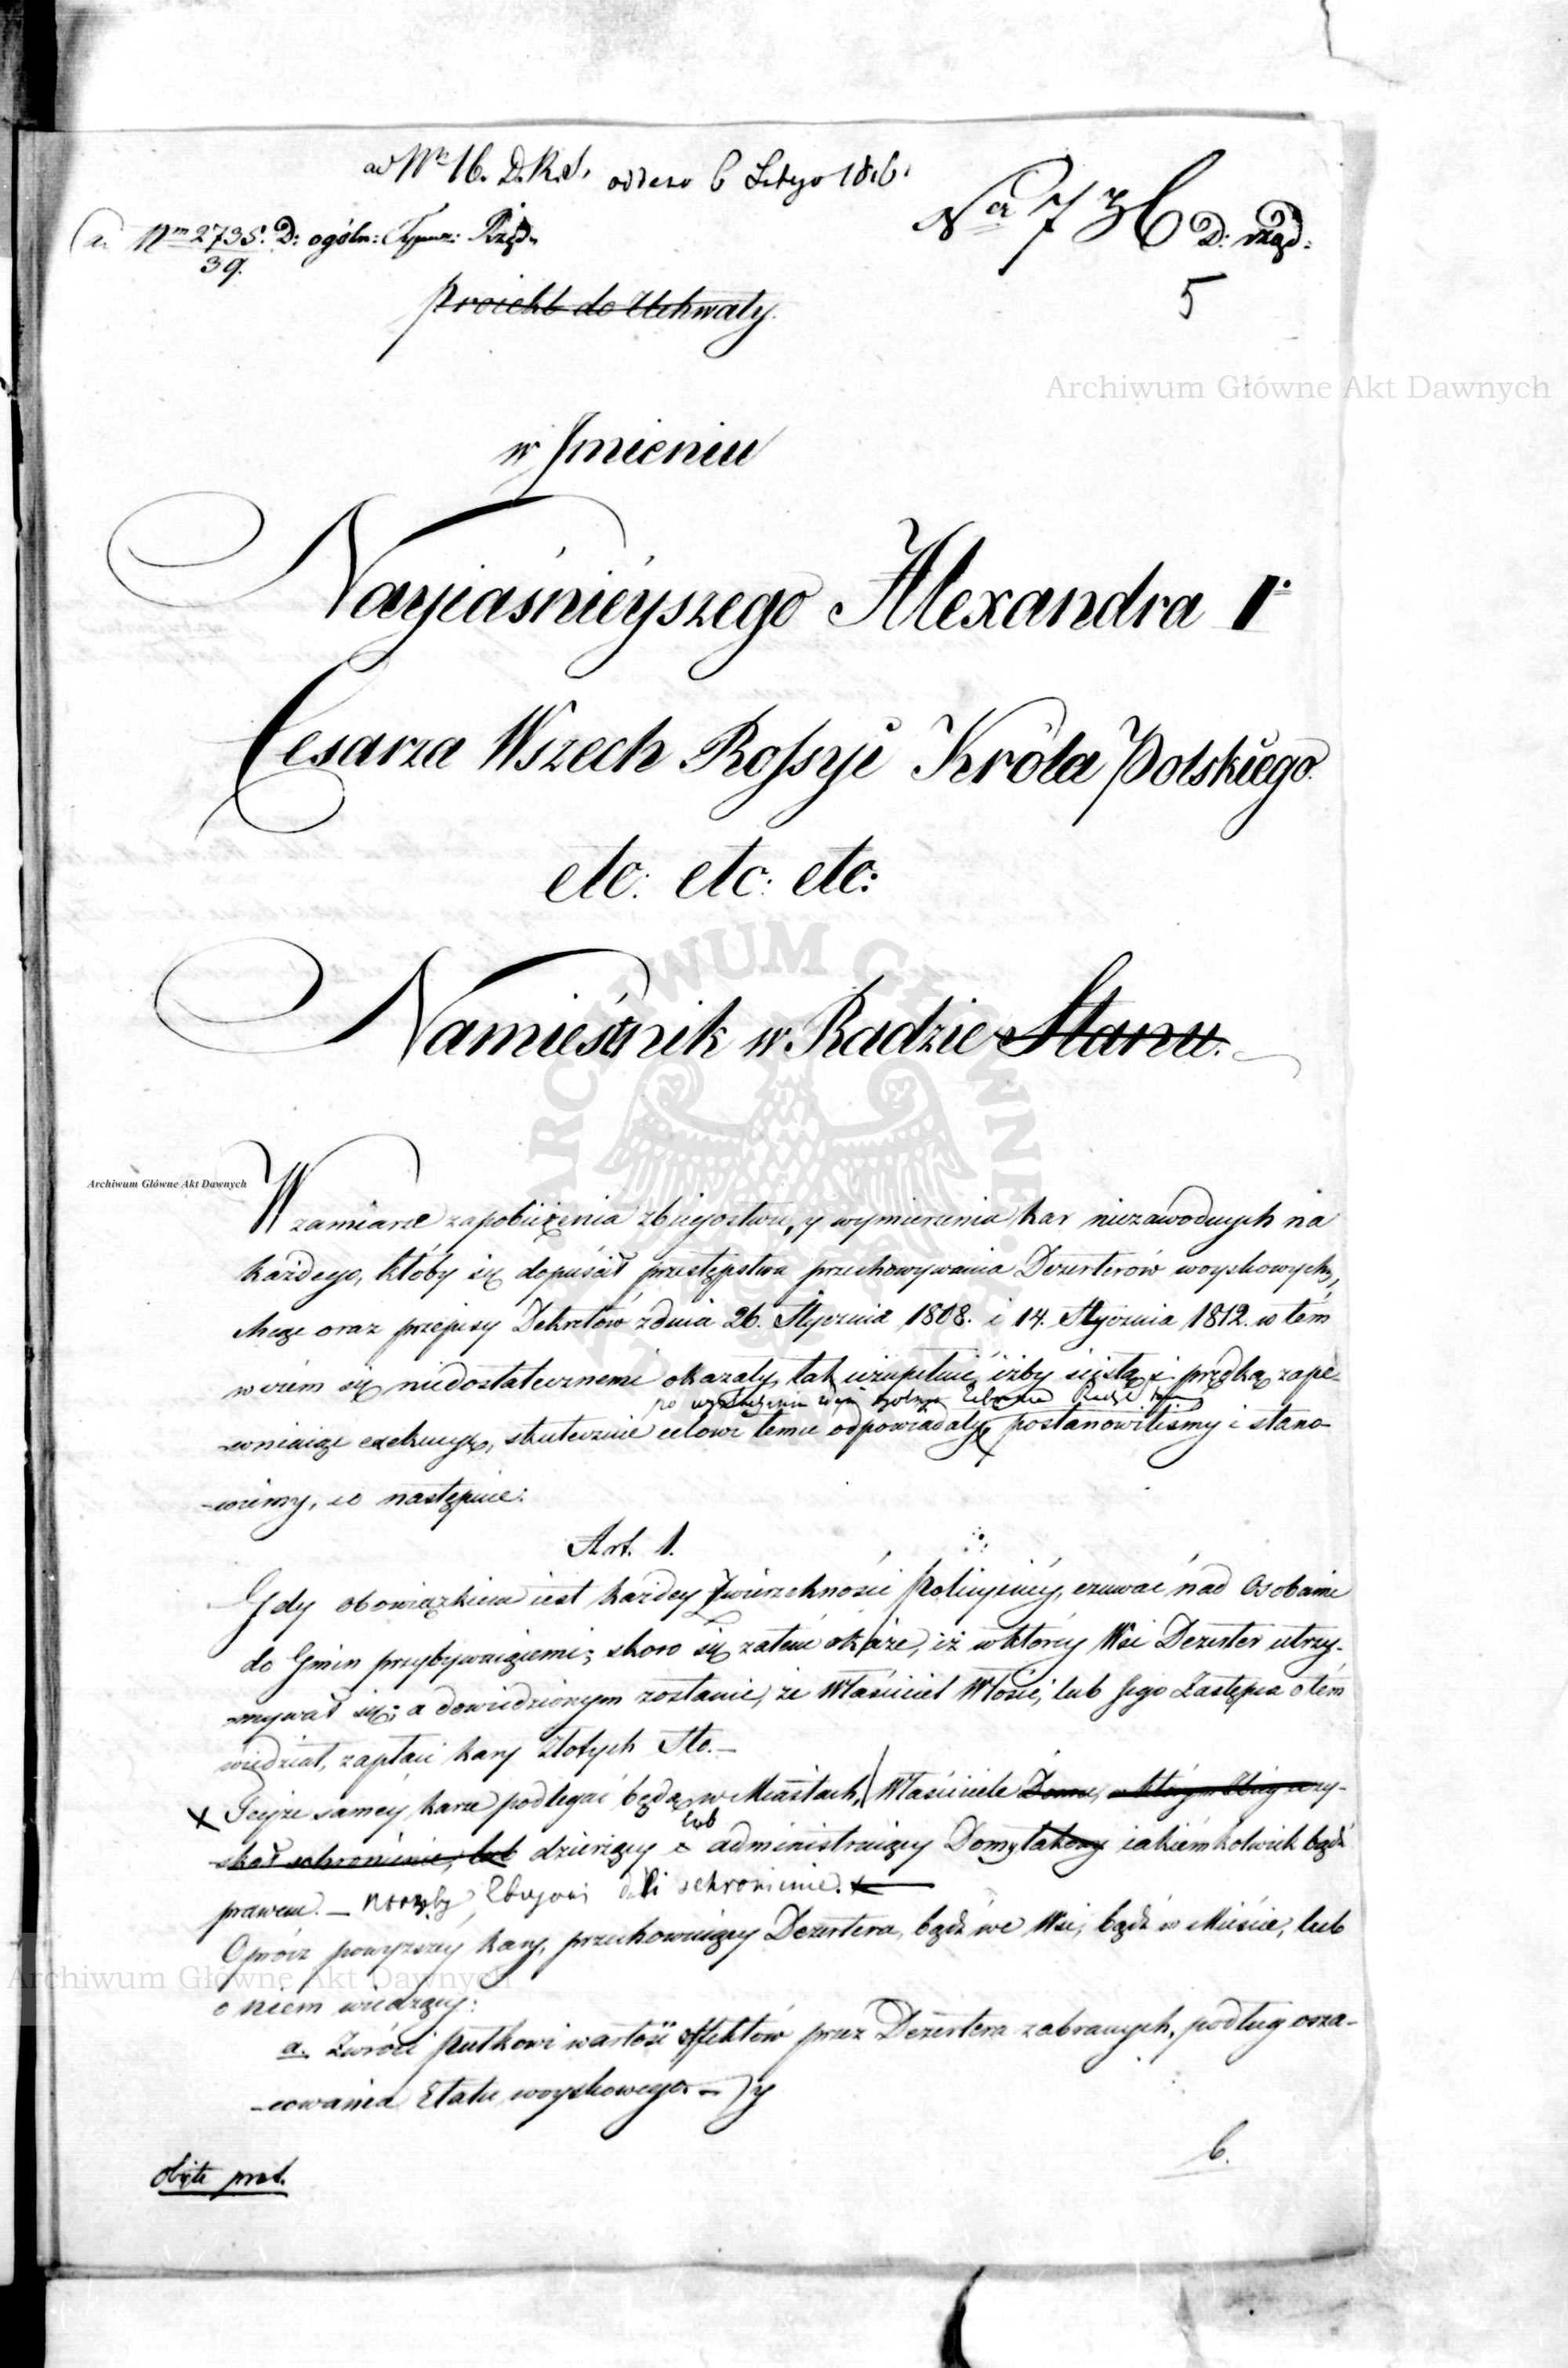 ad Nr 16. D.R.S. oddano 6 Lutego 1816.
Ner 736 D: rząd:
ad Nrm 2735. D: ogóln: Rząd.
39.
5
Proiekt do Uchwały.
Archiwum Główne Akt Dawnych
w Imieniu
Nayiaśnieyszego Alexandra I
Cesarza Wszech Rossyi Króla Polskiego.
etc: etc: etc:
Namiestnik w Radzie Stanu.
Archiwum Główne Akt Dawnych
W zamiarze zapobieżenia zbiegostwu, y wymierzenia kar niezawodnych na
każdego, któby się dopuścił przestępstwa przechowywania Dezerterów woyskowych,
chcąc oraz przepisy Dekretów z dnia 26. Stycznia 1808. i 14. Stycznia 1812. w tém
w czém się niedostatecznemi okazały, tak uzupełnić, iżby ścisłą i prędką zape-
po wysłuchaniu zdań Rady
-wniaiąc exekucyą, skutecznie celowi temu odpowiadały, postanowiliśmy i stano-
-wiemy, co następuie:
Art. 1.
Gdy obowiązkiem iest każdey Zwierzchności Policyiney, czuwać nad Osobami
do Gmin przybywaiącemi; skoro się zatem okaże, iż w którey Wsi Dezerter utrzy-
-mywał się; a dowiedzionym zostanie, że Właściciel Włości, lub Jego Zastępca o tém
wiedział, zapłaci kary Złotych Sto.—
x Teyże saméy karze podlegać będą w Miastach, Właściciele Domu, w którym Zbieg uzy-
lub
-skał schronienie, lub dzierżący administruiący Domy takowy iakiémkolwiek bądź
prawem. — któryby Zbiegowi dali schronienie. x
Oprócz powyższéy kary, przechowuiący Dezertera, bądź we Wsi, bądź w Mieście, lub
o niem wiedzący:
Archiwum Główne Akt Dawnych
a. Zwróci Pułkowi wartość effektów przez Dezertera zabranych, podług osza-
-cowania Etatu woyskowego. — y
b.